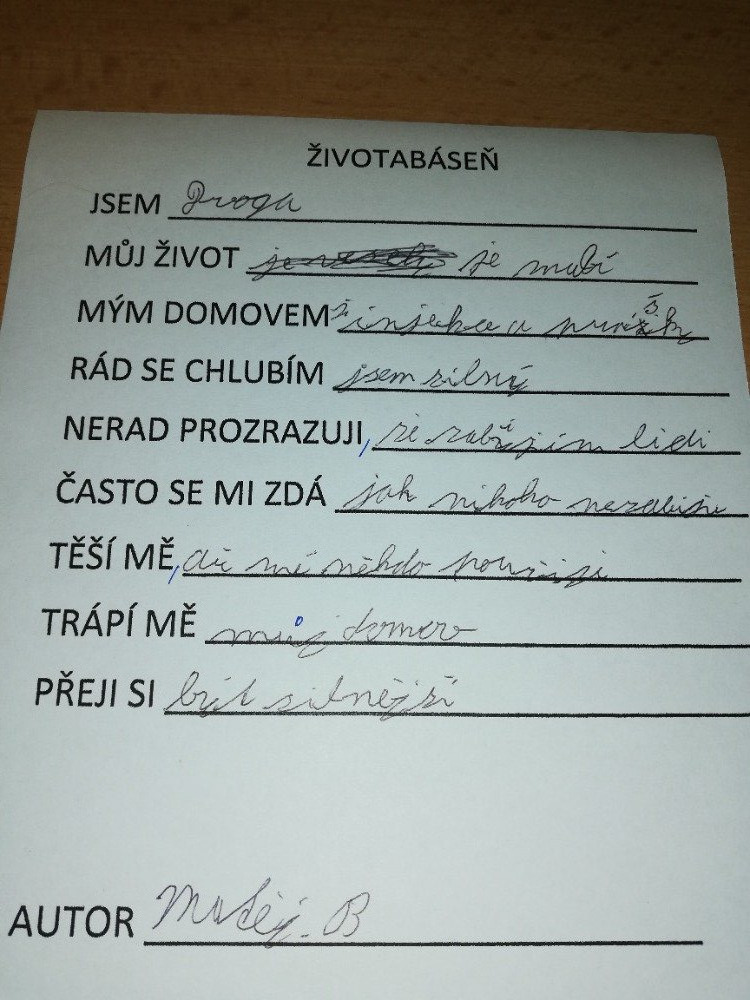 ŽIVOTABÁSEŇ
JSEM Droga
MŮJ ŽIVOT je
MÝM DOMOVEM injekce a prášek
RÁD SE CHLUBÍM jsem silný
NERAD PROZRAZUJI, že zabijím lidi
ČASTO SE MI ZDÁ jak nikoho nezabiju
TĚŠÍ MĚ, diž mě někdo použije
TRÁPÍ MĚ můj domov
PŘEJI SI být silnější
AUTOR Matěj. B